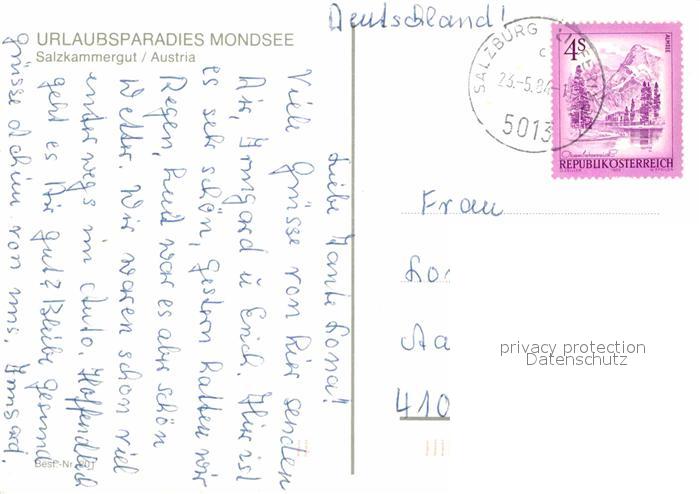 Deutschland!
URLAUBSPARADIES MONDSEE
Salzkammergut / Austria
Liebe Tante Lona!
Viele Grüsse von hier senden
Dir, Irmgard u Erich. Hier ist
es sehr schön, gestern hatten wir
Regen, heut war es aber schön
Wetter. Wir waren schon viel
unterwegs im Auto. Hoffendlich
geht es Dir gut? Bleibe gesund
Grüsse Achim von uns. Irmgard.
Best.-Nr.
SALZBURG
23.-5.84
5013
4S
ALMSEE
REPUBLIK ÖSTERREICH
Frau
Lo
Aa
410
privacy protection
Datenschutz